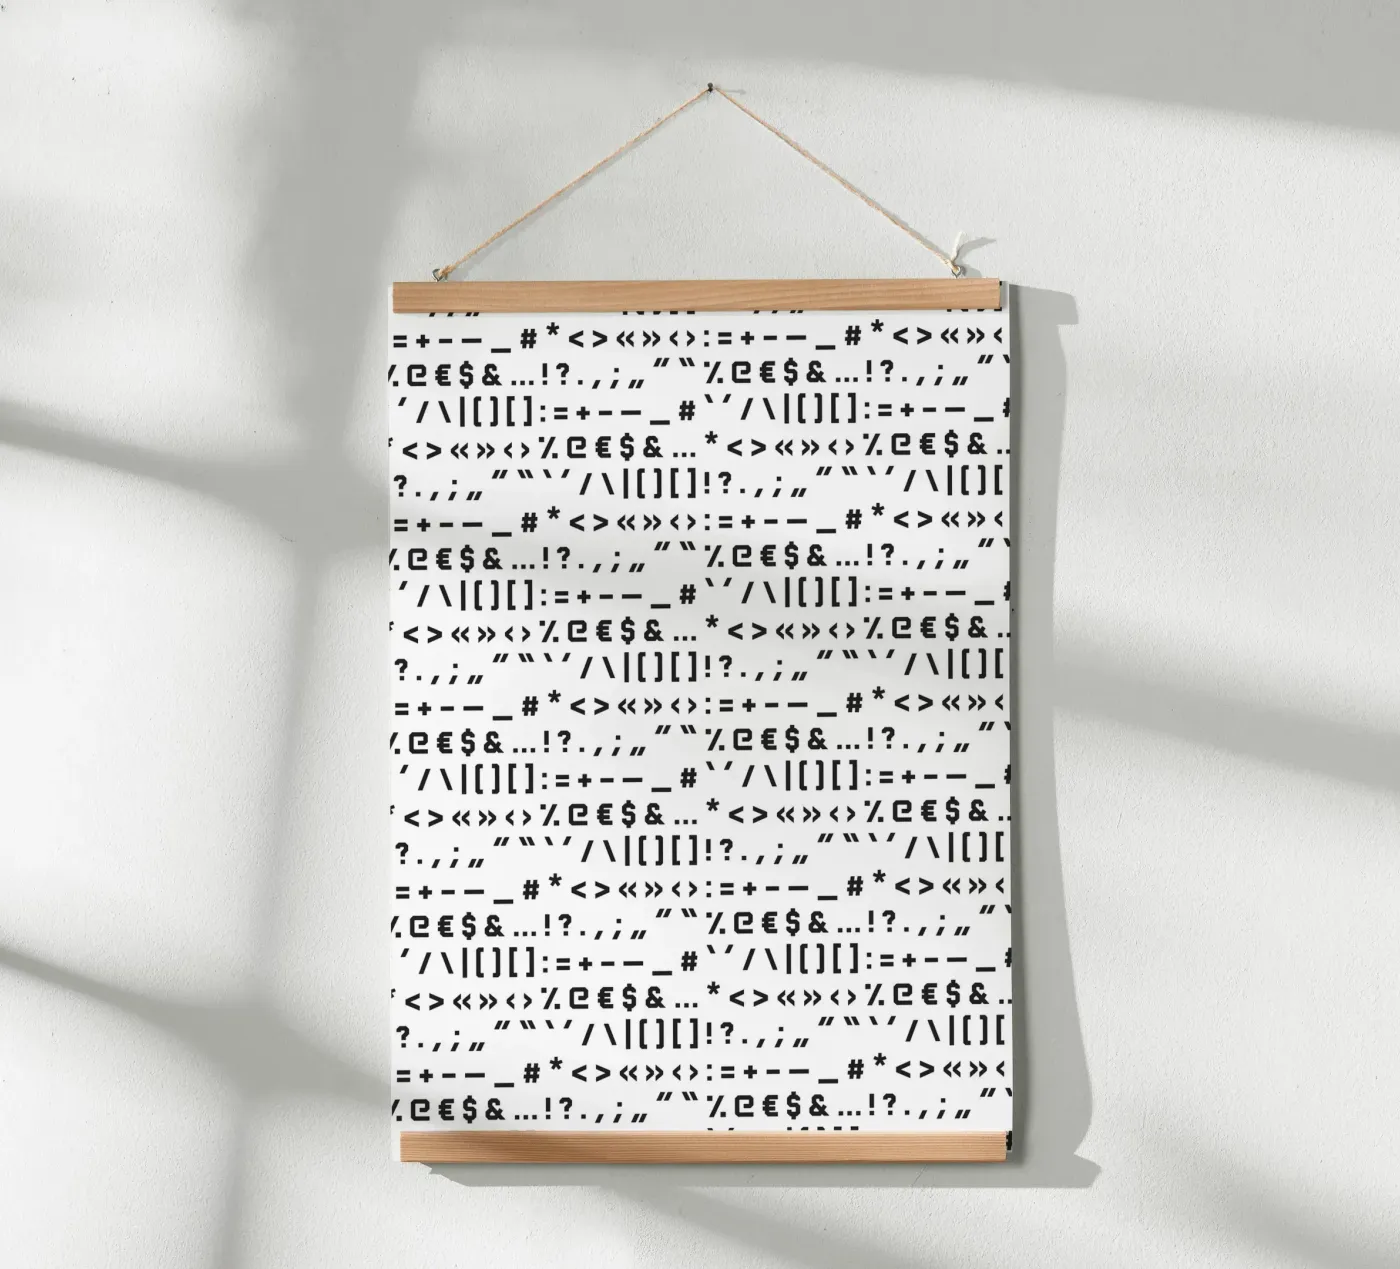 = + - — _ # * < > « » ‹ › : = + - — _ # * < > « » ‹
% @ € $ & … ! ? . , ; „ ” “ % @ € $ & … ! ? . , ; „ ”
´ / \ | [ ] [ ] : = + - — _ # ` ´ / \ | [ ] [ ] : = + - — _ #
* < > « » ‹ › % @ € $ & … * < > « » ‹ › % @ € $ & ..
? . , ; „ ” “ ` ´ / \ | [ ] [ ] ! ? . , ; „ ” “ ` ´ / \ | [ ] [
= + - — _ # * < > « » ‹ › : = + - — _ # * < > « » ‹
% @ € $ & … ! ? . , ; „ ” “ % @ € $ & … ! ? . , ; „ ”
´ / \ | [ ] [ ] : = + - — _ # ` ´ / \ | [ ] [ ] : = + - — _ #
* < > « » ‹ › % @ € $ & … * < > « » ‹ › % @ € $ & ..
? . , ; „ ” “ ` ´ / \ | [ ] [ ] ! ? . , ; „ ” “ ` ´ / \ | [ ] [
= + - — _ # * < > « » ‹ › : = + - — _ # * < > « » ‹
% @ € $ & … ! ? . , ; „ ” “ % @ € $ & … ! ? . , ; „ ”
´ / \ | [ ] [ ] : = + - — _ # ` ´ / \ | [ ] [ ] : = + - — _ #
* < > « » ‹ › % @ € $ & … * < > « » ‹ › % @ € $ & ..
? . , ; „ ” “ ` ´ / \ | [ ] [ ] ! ? . , ; „ ” “ ` ´ / \ | [ ] [
= + - — _ # * < > « » ‹ › : = + - — _ # * < > « » ‹
% @ € $ & … ! ? . , ; „ ” “ % @ € $ & … ! ? . , ; „ ”
´ / \ | [ ] [ ] : = + - — _ # ` ´ / \ | [ ] [ ] : = + - — _ #
* < > « » ‹ › % @ € $ & … * < > « » ‹ › % @ € $ & ..
? . , ; „ ” “ ` ´ / \ | [ ] [ ] ! ? . , ; „ ” “ ` ´ / \ | [ ] [
= + - — _ # * < > « » ‹ › : = + - — _ # * < > « » ‹
% @ € $ & … ! ? . , ; „ ” “ % @ € $ & … ! ? . , ; „ ”